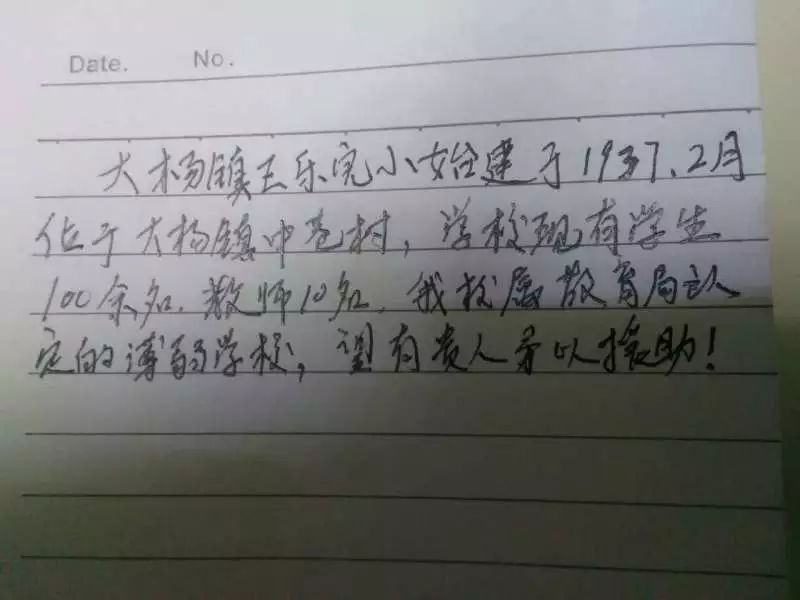 Date. No.
大杨镇王乐完小始建于1937.2月
位于大杨镇中巷村，学校现有学生
100余名.教师10名.我校属教育局认
定的薄弱学校，望有贵人予以援助！